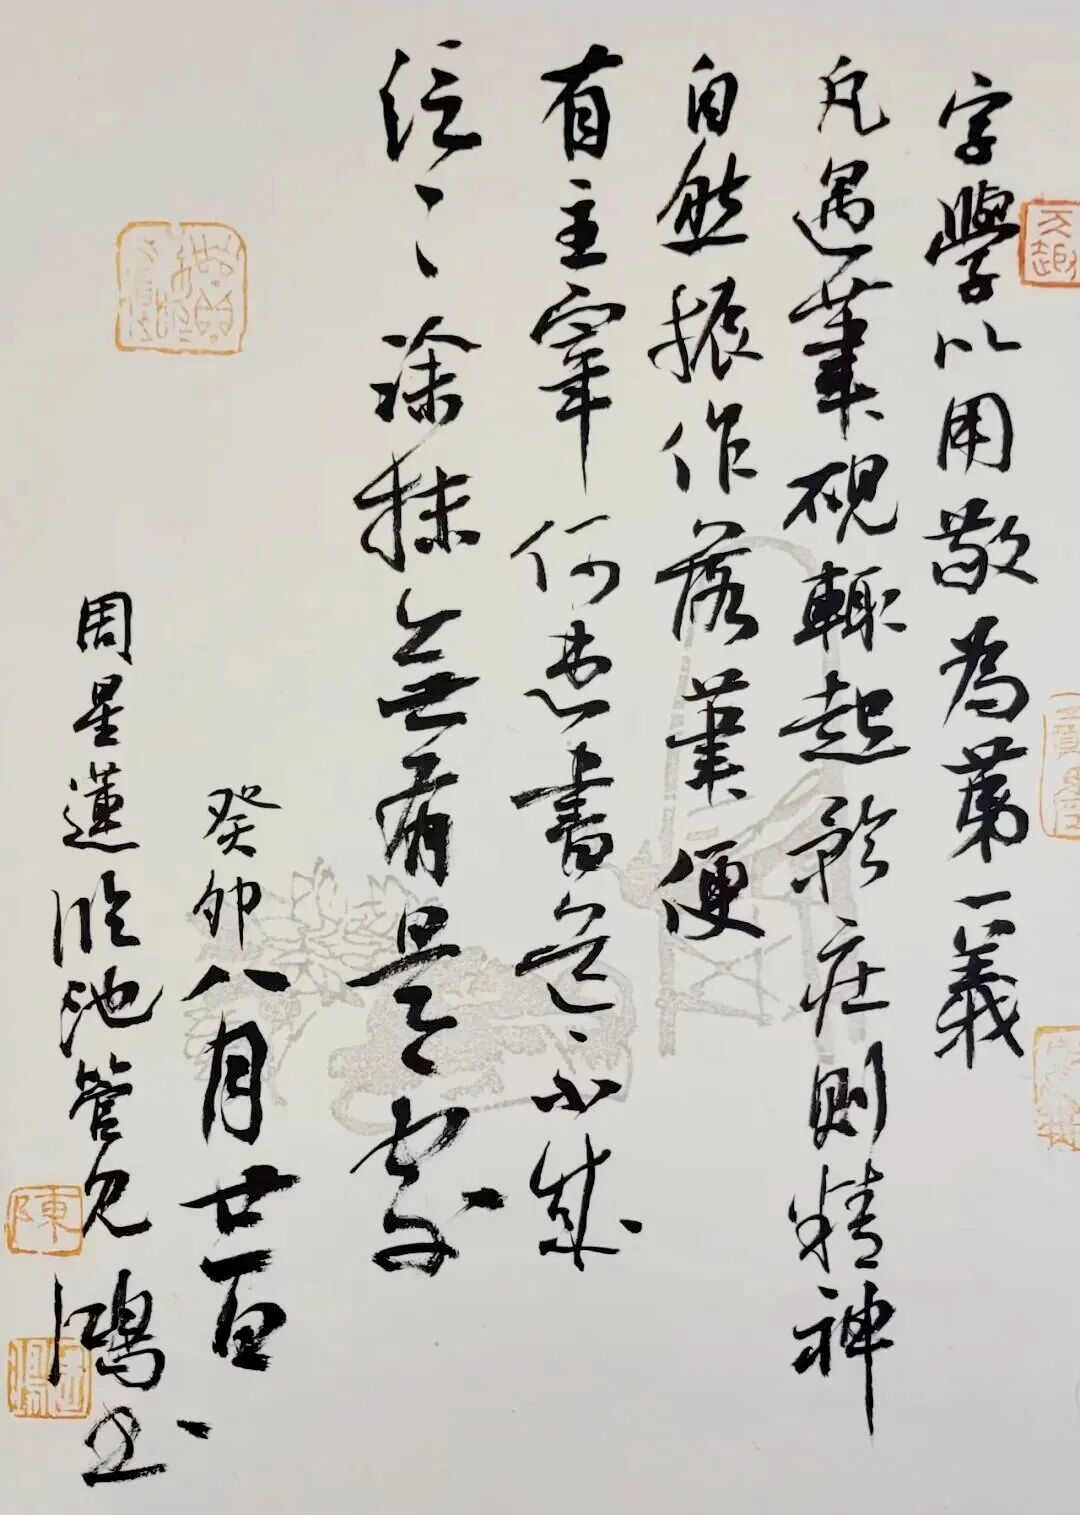 字學以用敬為第一義
凡遇筆硯輒起矜庄則精神
自然振作落筆便
有主宰何患書道不成
泛泛塗抹無有是處
癸卯八月廿一日
周星蓮臨池管見 鴻书
陳